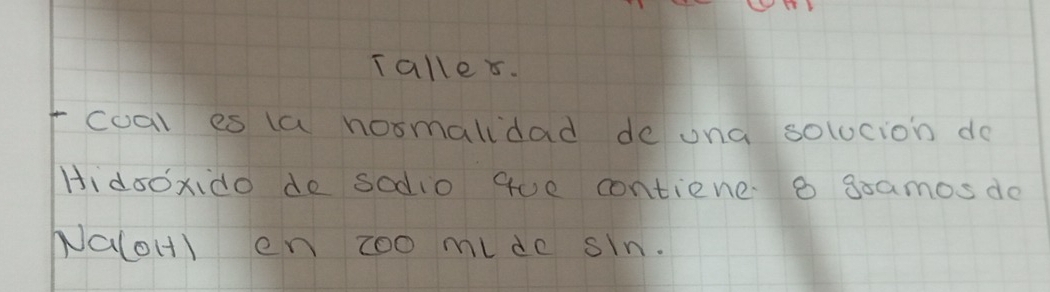 Taller.
- Cual es la normalidad de una solución de
Hidróxido de sodio que contiene 8 gramos de
Na(OH) en 200 ml de sln.